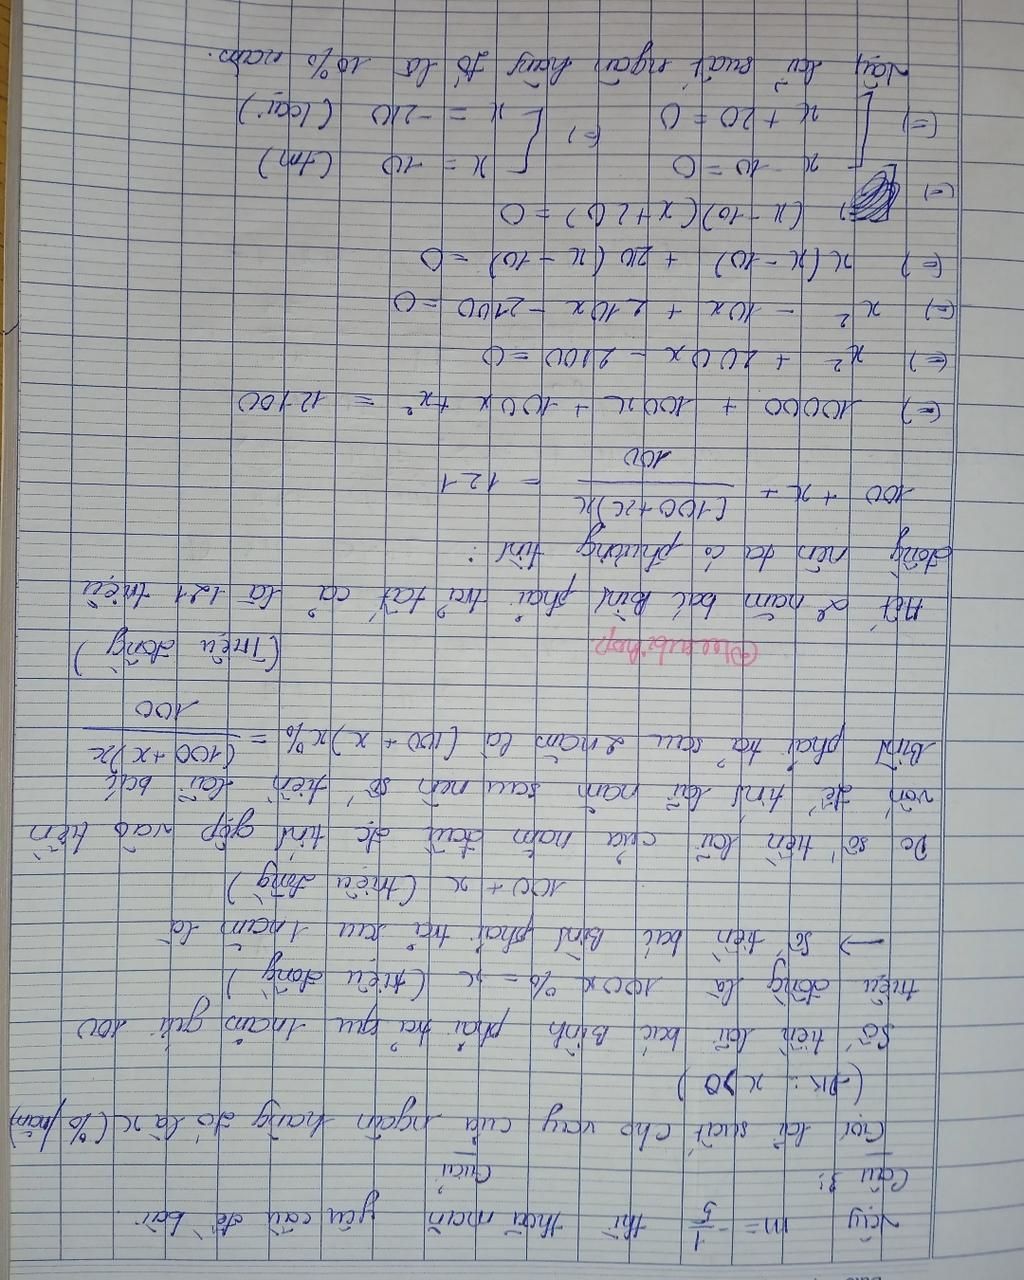 Vậy m = -1/5 thì thoả mãn yêu cầu đề bài.
Câu 3: Giải
Gọi lãi suất cho vay của ngân hàng đó là x (%/năm)
(ĐK: x > 0)
Số tiền lãi bác Bình phải trả sau 1 năm gửi 100
triệu đồng là 100x% = x (triệu đồng)
→ số tiền bác Bình phải trả sau 1 năm là
100 + x (triệu đồng)
Do số tiền lãi của năm đầu đc tính gộp vào tiền
vốn để tính lãi năm sau nên số tiền lãi bác
Bình phải trả sau 2 năm là (100 + x)x% = (100 + x)x/100
(triệu đồng)
Hết 2 năm bác Bình phải trả tất cả là 121 triệu
đồng nên ta có phương tình:
100 + x + (100+x)x/100 = 121
(=) 10000 + 100x + 100x + x² = 12100
(=) x² + 200x - 2100 = 0
(=) x² - 10x + 210x - 2100 = 0
(=) x(x - 10) + 210(x - 10) = 0
(=) (x - 10)(x + 210) = 0
(=) [ x - 10 = 0 (=) [ x = 10 (tm)
x + 210 = 0 x = -210 (loại)
Vậy lãi suất ngân hàng đó là 10% năm.